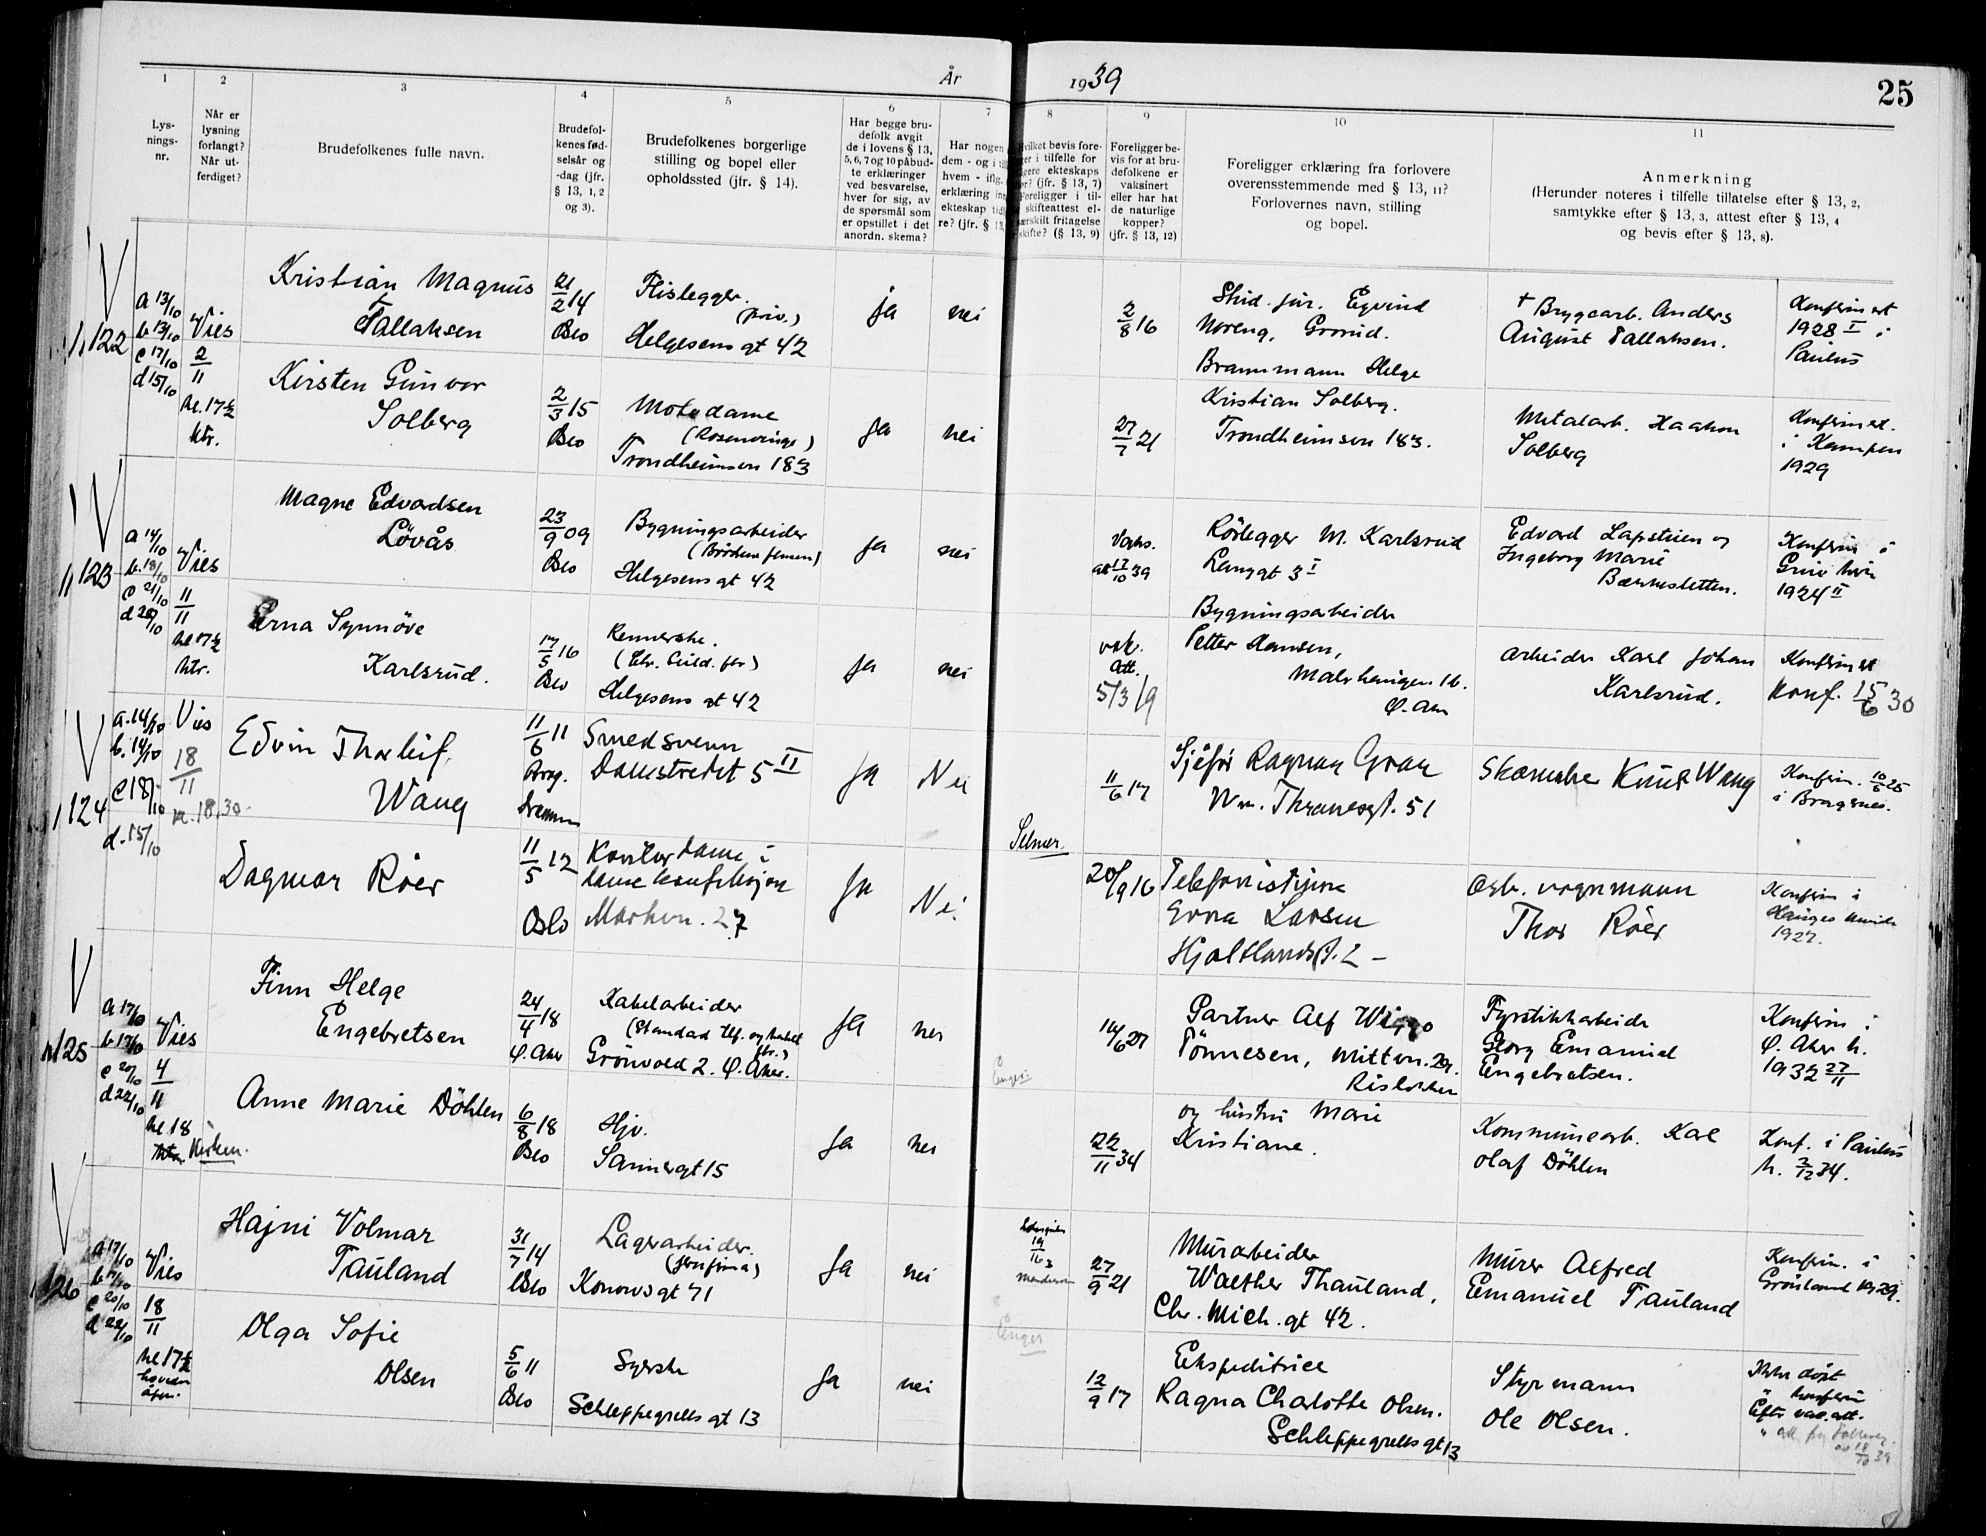 År 1939
25
1
2
3
4
5
6
7
8
9
10
11
Lys-
nings-
nr.
Når er
lysning
forlangt?
Når ut-
ferdiget?
Brudefolkenes fulle navn.
Brudefol-
kenes fød-
selsår og
-dag (jfr.
§ 13, 1, 2
og 3).
Brudefolkenes borgerlige
stilling og bopel eller
opholdssted (jfr. § 14).
Har begge bru-
defolk avgit
de i lovens § 13,
5, 6, 7 og 10 påbud-
te erklæringer
ved besvarelse,
hver for sig, av
de spørsmål som
er opstillet i det
anordn. skema?
Har nogen
dem - og i
hvem - iflg.
erklæring
ekteskap
re? (jfr. § 13,
bevis fore-
i tilfelle for
ekteskaps
(jfr. § 13, 7)
Foreligger i til-
skifteattest el-
særskilt fritagelse
skifte? (§ 13, 9)
Foreligger be-
vis for at bru-
defolkene er
vaksinert
eller har hat
de naturlige
kopper?
(jfr. § 13, 12)
Foreligger erklæring fra forlovere
overensstemmende med § 13, 11?
Forlovernes navn, stilling
og bopel.
Anmerkning
(Herunder noteres i tilfelle tillatelse efter § 13, 2,
samtykke efter § 13, 3, attest efter § 13, 4
og bevis efter § 13, 8).
122
a 13/10
b 13/10
c 17/10
d 15/10
Vies
2/11
kl. 17½
ktr.
Kristian Magnus
Tallaksen
21/2 14
Oslo
Flislegger.
(priv.)
Helgesens gt 42
ja
nei
2/8 16
Stud. jur. Eyvind
Noreng, Grorud.
Brannmann Helge
Kristian Solberg.
Trondheimsvn 183.
+ Bryggearb. Anders
August Tallaksen.
Konfirmert
1928 I i
Paulus
Kirsten Gunvor
Solberg
2/3 15
Oslo
Motedame
(Rosenvinge)
Trondheimsvn 183
ja
nei
27/7 21
Metalarb. Haakon
Solberg
Konfirmert.
i Kampen
1929
123
a 14/10
b. 18/10
c 21/10
d 20/10
Vies
11/11
kl 17½
ktr.
Magne Edvardsen
Lövås
23/9 09
Oslo
Bygningsarbeider
Helgesens gt 42
ja
nei
Vaks.
att 17/10 39
Rørlegger M. Karlsrud
Langgt 3 I
Bygningsarbeider
Petter Hansen,
Ø. Aker
Edvard Lapstuen og
Ingeborg Marie
Konfirm i
1924 II
Erna Synnöve
Karlsrud.
17/5 16
Oslo
Helgesens gt 42
ja
nei
vak.
att.
5/3 19
Arbeider Karl Johan
Karlsrud.
Konfirmert
Konf. 15/6 30
124
a. 14/10
b. 14/10
c 18/10
d. 15/10
Vies
18/11
kl. 18,30.
Edvin Thorleif,
Wang
11/6 11
Brag.
Drammen
Smedsvenn
Dallstredet 5 II
Ja
Nei
11/6 17
Sjåfør Ragnar Gran
Wm. Thranesgt. 51
Skomaker Knut Wang
Konfirm. 10/5 25
i Bragernes.
Selmer.
Dagmar Röer
11/5 12
Oslo
Kontordame i
damekonfeksjon
Markvn. 27
Ja
Nei.
20/9 16
Telefonistinne
Erna Larsen
Hjaltlandsgt. 2 -
Osb. vognmann
Thor Röer
Konfirm i
Hauges minde
1927.
125
a 17/10
b 17/10
c 20/10
d 22/10
Vies
4/11
kl 18
ktr. Kirken.
Finn Helge
Engebretsen
24/4 18
Ø. Aker
Kabelarbeider
(Standard tlf. og kabel
fbr.)
Grönvold 2. Ø. Aker.
ja
nei
16/6 27
Gartner Alf Wiggo
Tönnesen, Mittvn. 29.
Risløkken
og hustru Marie
Kristiane.
Fyrstikkarbeider
Georg Emanuel
Engebretsen.
Konfirm i
Ø. Aker k.
1932 27/11
Anne Marie Döhlen
6/8 18
Oslo
Hjv.
Sannergt 15
ja
nei
22/11 34
Kommunearb. Karl
Olaf Döhlen
Konf. i Paulus
k. 2/12 34.
126
a 17/10
b 17/10
c 20/10
d 22/10
Vies
18/11
kl 17½
Hajni Volmar
Tauland
31/7 14
Oslo
Lagerarbeider.
Konowsgt 71
ja
nei
27/9 21
Murarbeider
Walther Thauland,
Chr. Mich. gt 42.
Murer Alfred
Emanuel Tauland
Konfirm. i
Grönland 1929.
Enger
Olga Sofie
Olsen
5/6 11
Oslo
Syerske
Schleppegrells gt 13
ja
nei
12/9 17
Ekspeditrice
Ragna Charlotte Olsen.
Schleppegrells gt 13
Styrmann
Ole Olsen.
Ikke döpt
" konfirm
Efter vac. att.
18/10 39